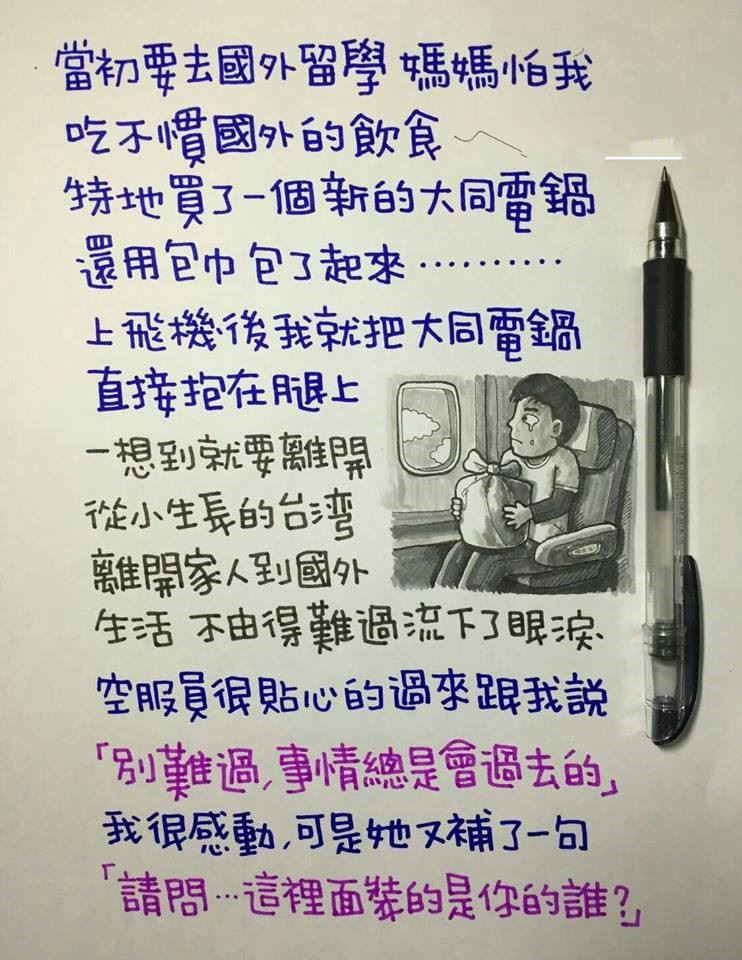 當初要去國外留學 媽媽怕我
吃不慣國外的飲食
特地買了一個新的大同電鍋
還用包巾包了起來‧‧‧‧‧‧‧‧‧‧
上飛機後我就把大同電鍋
直接抱在腿上
一想到就要離開
從小生長的台灣
離開家人到國外
生活 不由得難過流下了眼淚.
空服員很貼心的過來跟我說
「別難過,事情總是會過去的」
我很感動,可是她又補了一句
「請問…這裡面裝的是你的誰?」